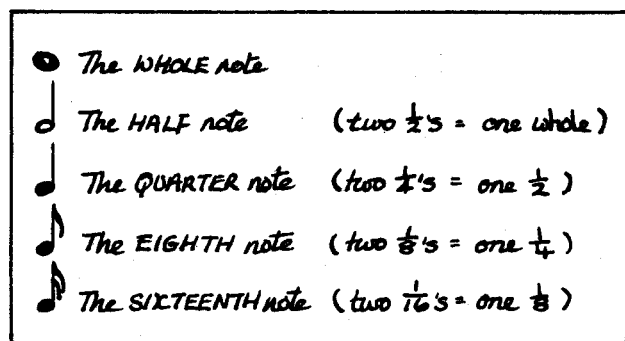 The WHOLE note
The HALF note (two 1/2's = one whole)
The QUARTER note (two 1/4's = one 1/2)
The EIGHTH note (two 1/8's = one 1/4)
The SIXTEENTH note (two 1/16's = one 1/8)